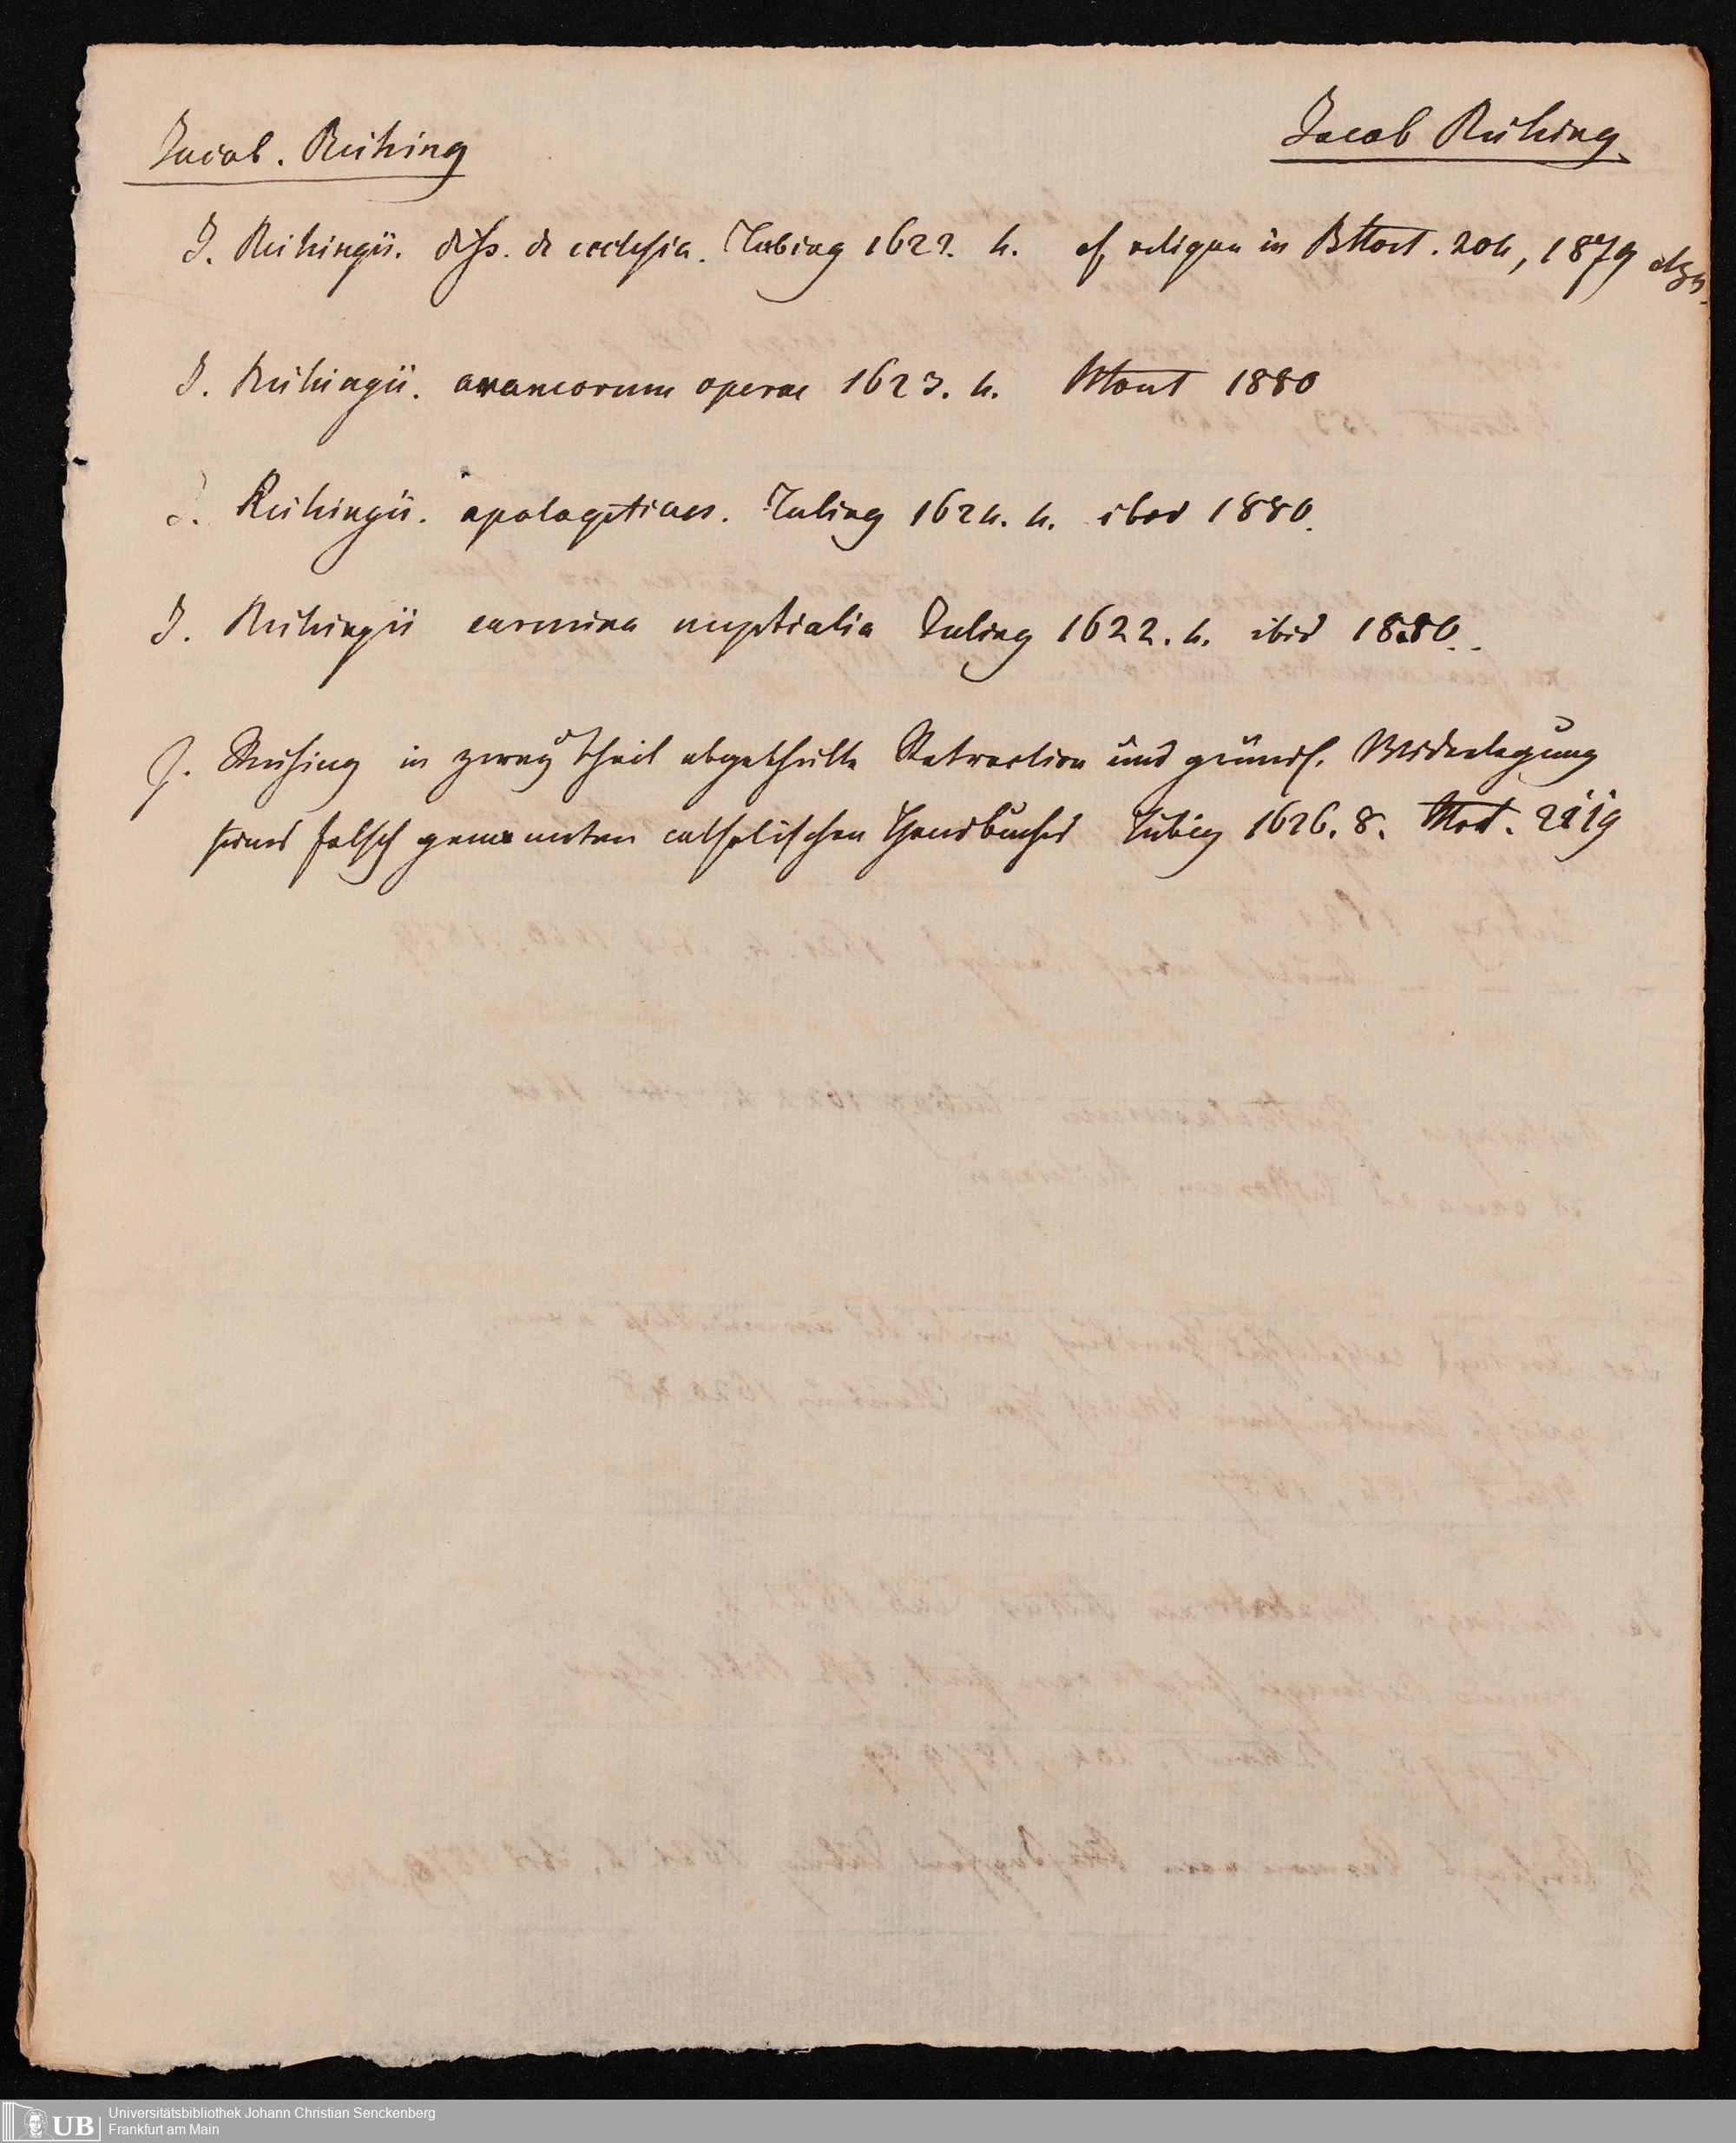 Jacob. Reihing
Jacob Reihing
J. Reihingii. diss. de ecclesia. Tubing 1622. 4. et reliqua in BMont. 204, 1879
J. Reihingii. araneorum operae 1623. 4. BMont 1880
J. Reihingii. apologeticus. Tubing 1624. 4. ibid 1880.
J. Reihingii carmina nuptialia Tubing 1622. 4. ibid 1880.
J. Reihing in zwey Theil abgetheilte Retraction und gründl. Widerlegung
seines falsch genannten catholischen Handbuches Tübing 1626. 8.
Universitätsbibliothek Johann Christian Senckenberg
Frankfurt am Main
UB